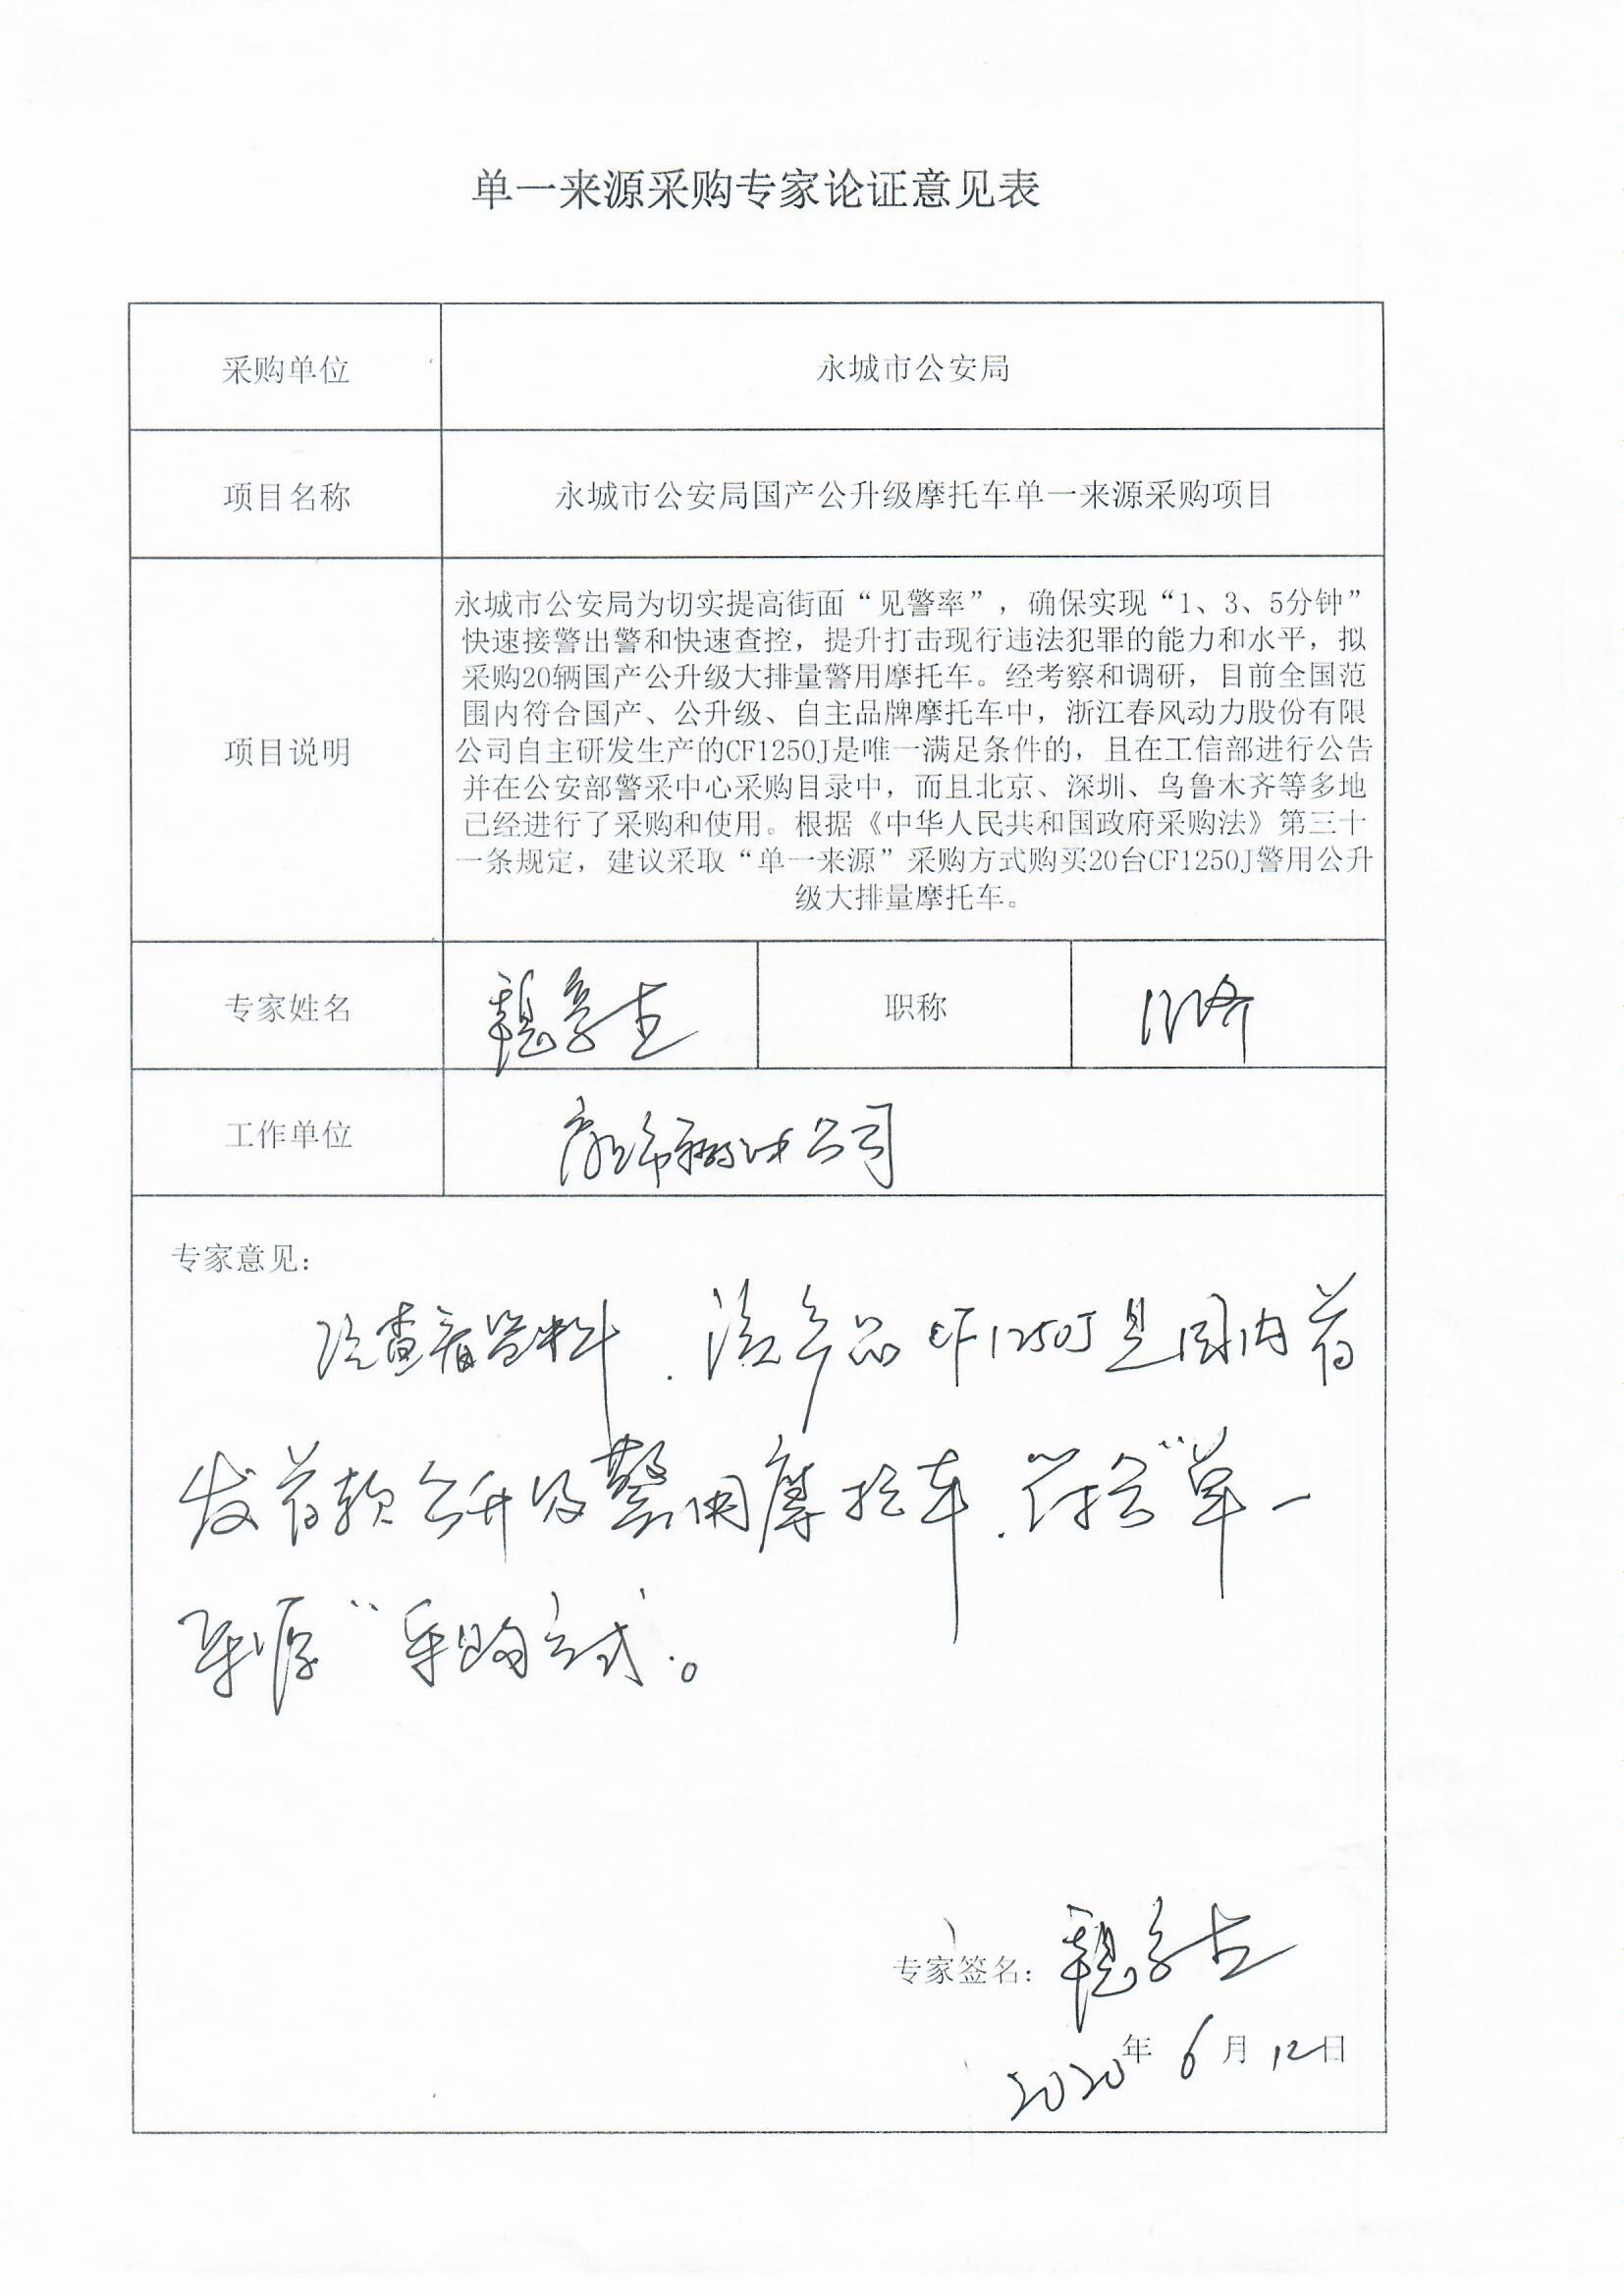 单一来源采购专家论证意见表
采购单位
永城市公安局
项目名称
永城市公安局国产公升级摩托车单一来源采购项目
项目说明
永城市公安局为切实提高街面“见警率”，确保实现“1、3、5分钟”
快速接警出警和快速查控，提升打击现行违法犯罪的能力和水平，拟
采购20辆国产公升级大排量警用摩托车。经考察和调研，目前全国范
围内符合国产、公升级、自主品牌摩托车中，浙江春风动力股份有限
公司自主研发生产的CF1250J是唯一满足条件的，且在工信部进行公告
并在公安部警采中心采购目录中，而且北京、深圳、乌鲁木齐等多地
已经进行了采购和使用。根据《中华人民共和国政府采购法》第三十
一条规定，建议采取“单一来源”采购方式购买20台CF1250J警用公升
级大排量摩托车。
专家姓名
职称
工作单位
公司
专家意见：
经查看资料，该产品CF1250J是国内首
发首款公升级警用摩托车，符合“单一
来源”采购方式。
专家签名：
2020年6月12日